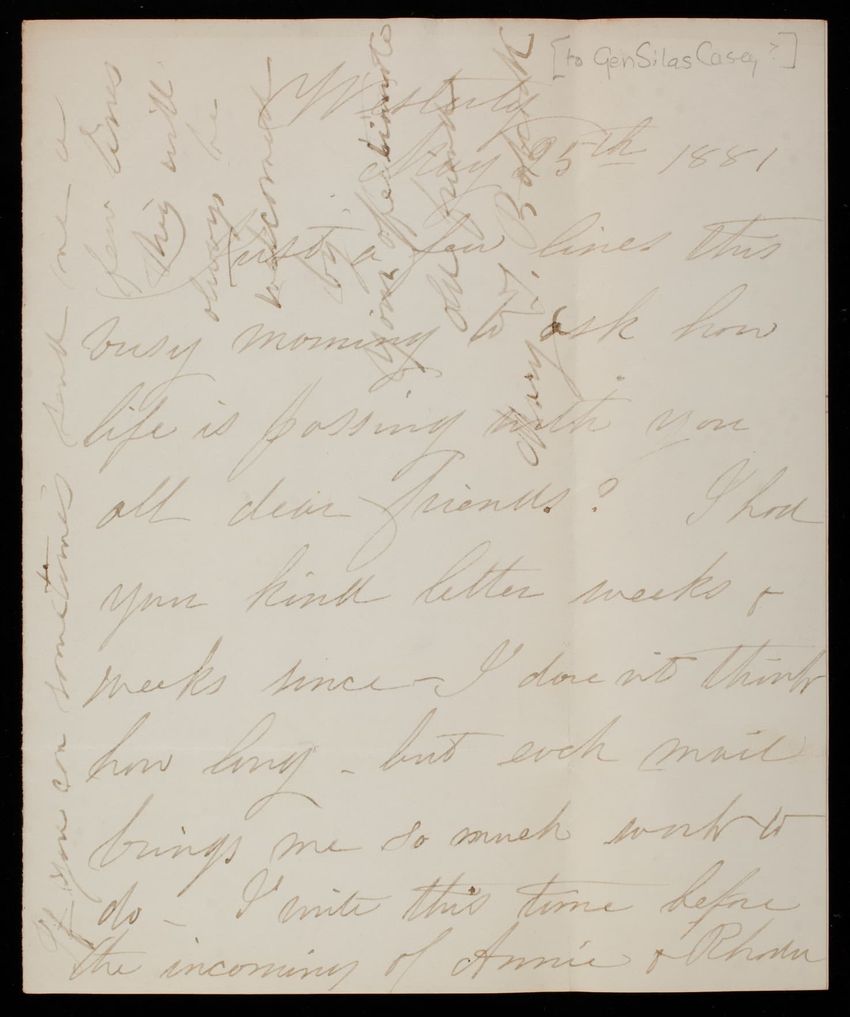 [to Gen Silas Casey?]
Westerly
May 25th 1881
Just a few lines this
busy morning to ask how
life is passing with you
all dear friends? I had
your kind letter weeks &
weeks since - I dare not think
how long - but each mail
brings me so much work to
do - I write this time before
the incoming of Annie & Rhoda
If you can sometimes send me a
few lines
they will
always be
welcomed
by
Your affectionate
old friend
Mary